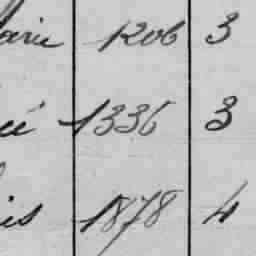 arie 1206 3
cé 1336 3
is 1878 4